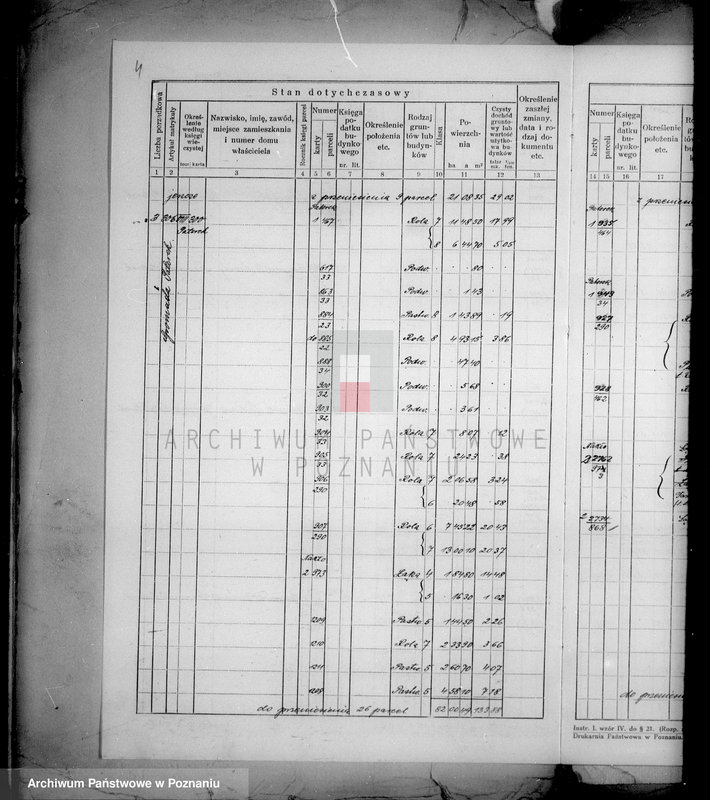 4
Stan dotychczasowy
Liczba porządkowa
Artykuł matrykuły
Określenie według księgi wieczystej
tom karta
Nazwisko, imię, zawód, miejsce zamieszkania i numer domu właściciela
Rocznik księgi parcel
Numer
karty
parceli
Księga podatku budynkowego
nr. lit.
Określenie położenia etc.
Rodzaj gruntów lub budynków
Klasa
Powierzchnia
ha a m²
Czysty dochód gruntowy lub wartość użytkowa budynków
Określenie zaszłej zmiany, data i rodzaj dokumentu etc.
1 2 3 4 5 6 7 8 9 10 11 12 13
jeszcze z przeniesienia 9 parcel 21 08 35 29 02
Paterek
Rola 7 17 99
Paterek
8 6 44 70 5 05
gromada Paterek
617 Podw. 80
33
863 Podw. 1 43
33
884 Pastw. 8 1 43 89 19
23
do 885 Rola 8 4 93 15 3 86
22
888 Podw. 47 40
34
900 Podw. 5 68
32
903 Podw. 3 61
32
904 Rola 7 8 07 12
33
905 Rola 7 24 23 38
33
906 Rola 7 2 06 58 3 24
290
6 20 48 58
907 Rola 6 7 45 22 20 43
290
7 13 00 10 20 37
Nakło
2 973 Łąka 4 1 84 80 14 48
5 16 30 1 02
1209 Pastw. 5 1 44 50 2 26
1210 Rola 7 2 33 90 3 66
1211 Pastw. 5 2 60 70 4 07
1208 Pastw. 5 4 58 10 7 18
do przeniesienia 26 parcel
Numer
karty
parceli
Księga podatku budynkowego
nr. lit.
Określenie położenia etc.
14 15 16 17
Paterek
1 935
464
Paterek
1 943
34
927
290
928
462
Nakło
2 2774
868
do przeniesien
Instr. I. wzór IV. do § 21. (Rozp.
Drukarnia Państwowa w Poznaniu.
ARCHIWUM PAŃSTWOWE
W POZNANIU
Archiwum Państwowe w Poznaniu